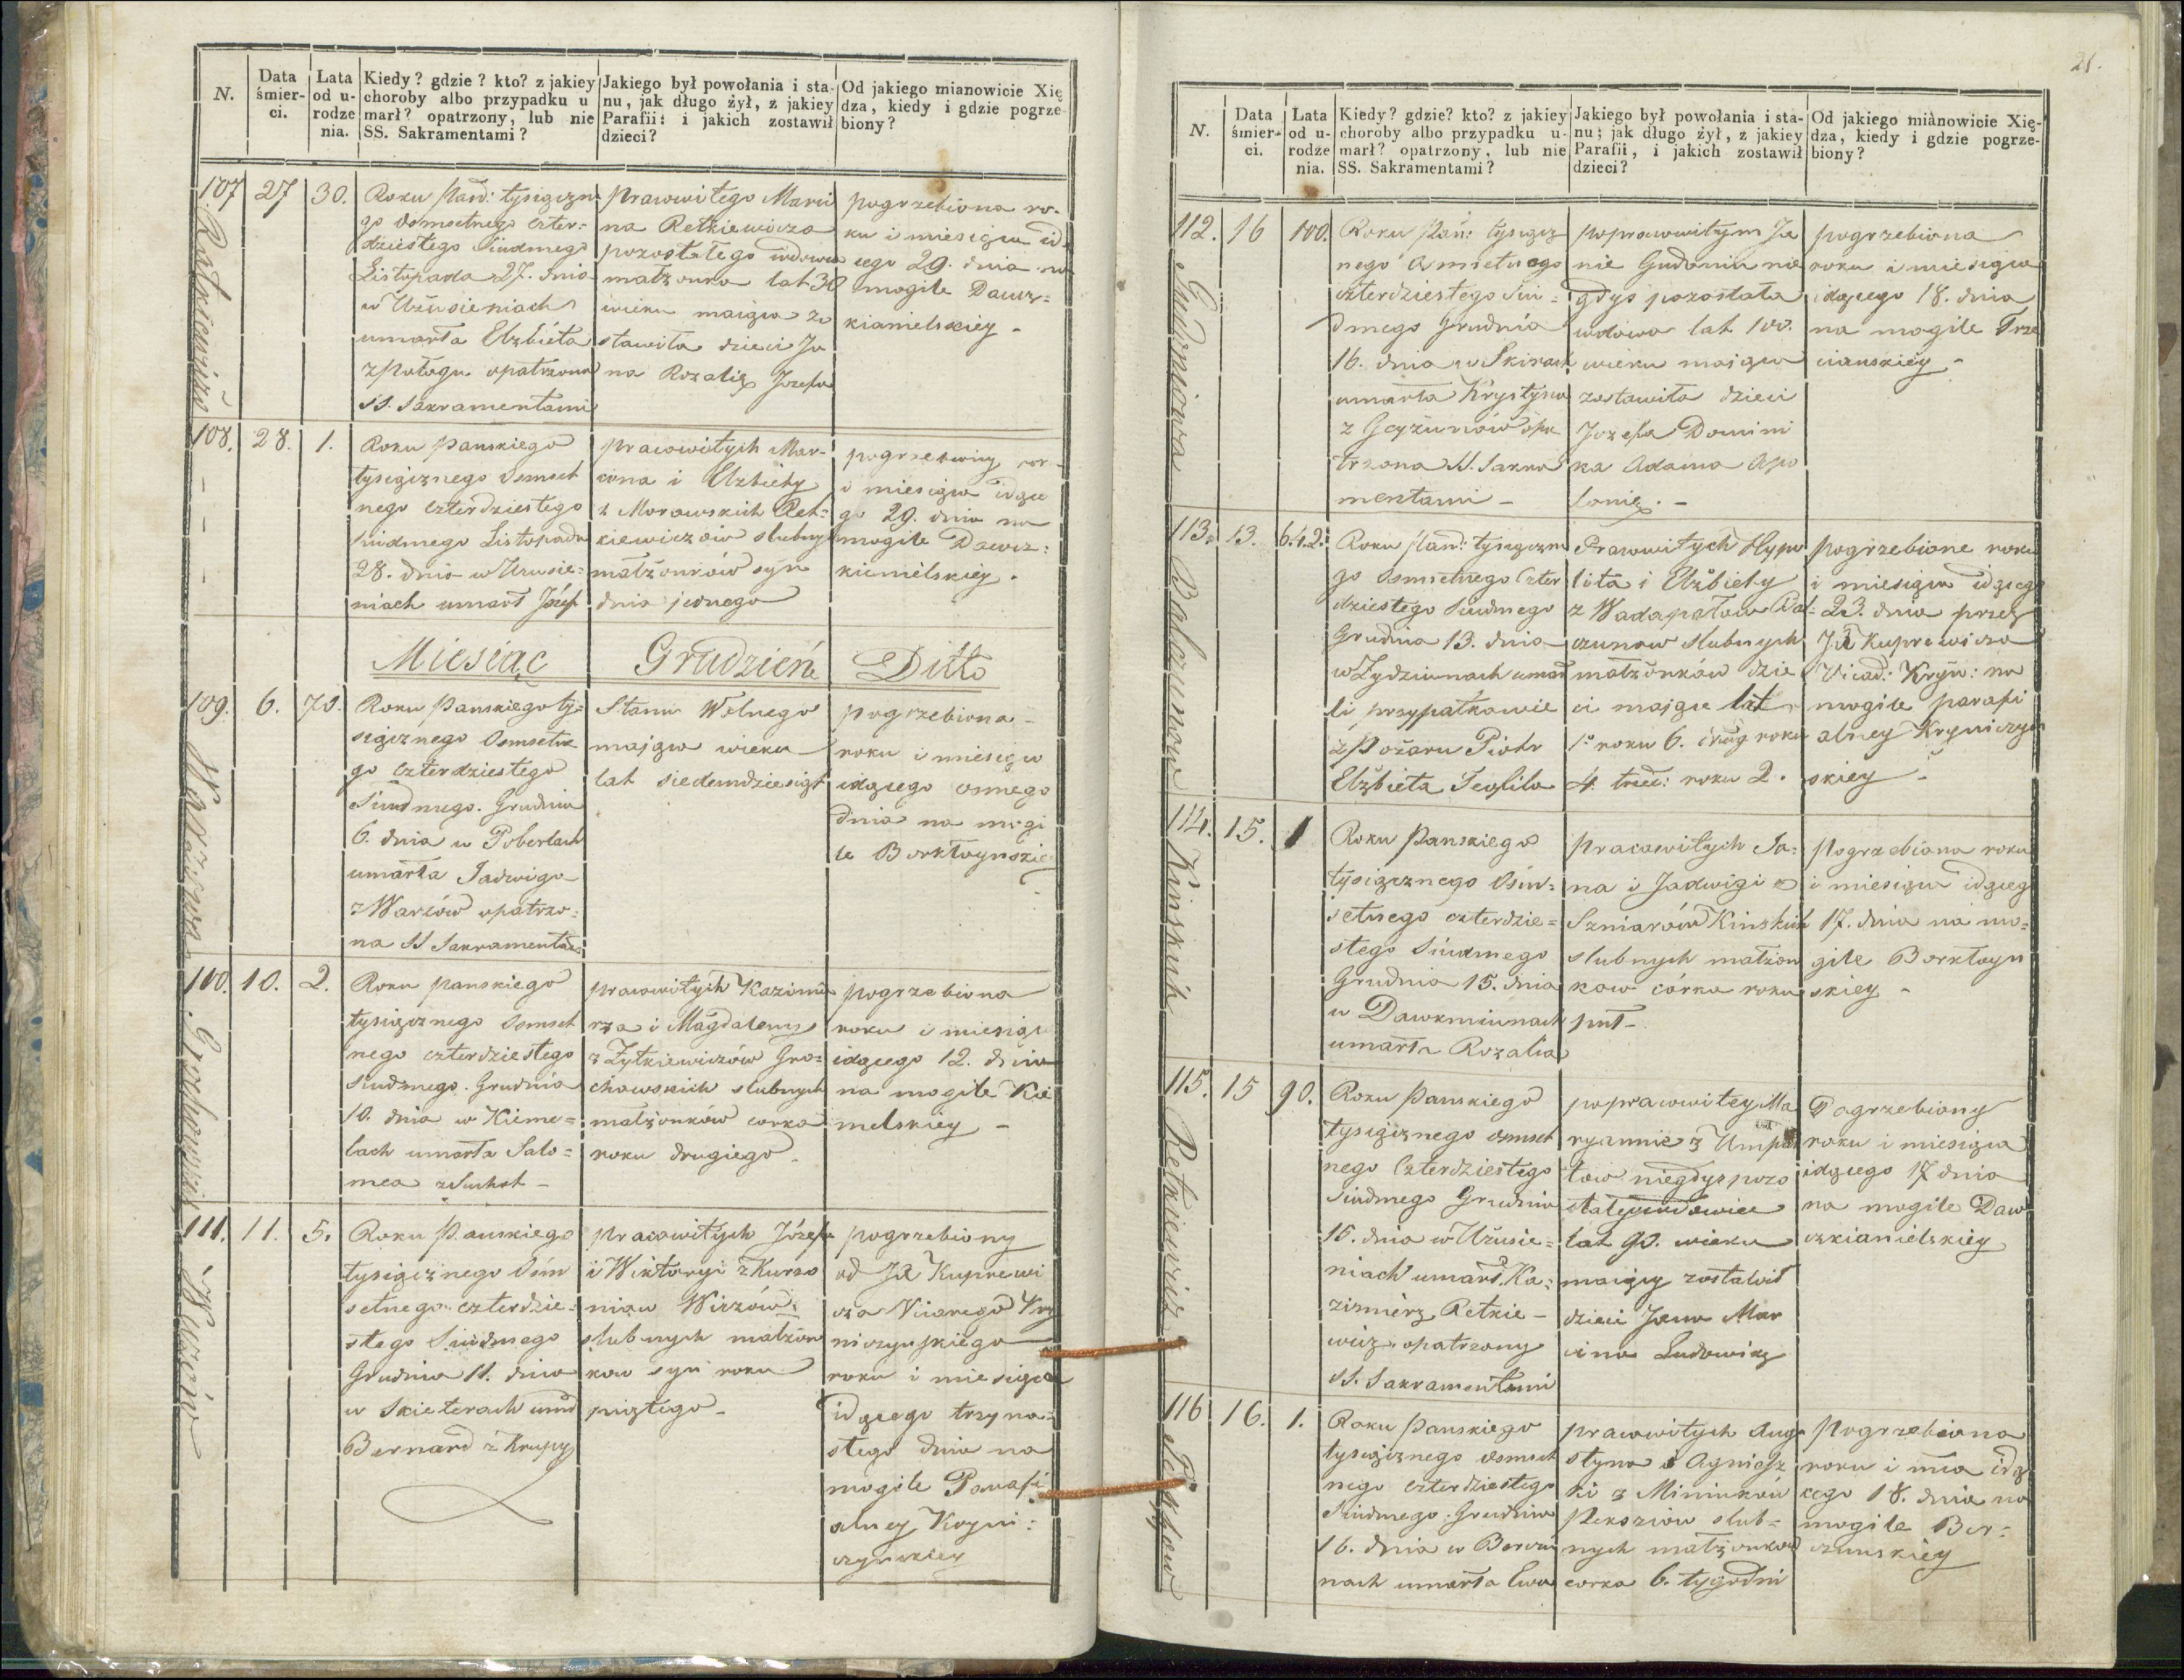 N.
Data śmier- ci.
Lata od u- rodze nia.
Kiedy? gdzie? kto? z jakiey
choroby albo przypadku u
marł? opatrzony, lub nie
SS. Sakramentami?
Jakiego był powołania i sta-
nu, jak długo żył, z jakiey
Parafii: i jakich zostawił
dzieci?
Od jakiego mianowicie Xię
dza, kiedy i gdzie pogrze-
biony?
107
27
30.
Roku Pań: tysiączne
go osmsetnego czter=
dziestego Siudmego
Listopada 27. dnia
w Użusieniach
umarła Elzbieta
z Połogu opatrzona
SS. Sakramentami
pracowitego Marci
na Retkiewicza
pozostałego wdowca
małżonka lat 30
wieku maiąca zo
stawiła dzieci Ja
na Rozalię Jozefa
pogrzebiona ro-
ku i miesiąca idą
cego 29. dnia na
mogile Dawcz=
kianielskiey -
108.
28.
1.
Roku Panskiego
tysiącznego Osmset
nego czterdziestego
Siudmego Listopada
28. dnia w Uzusie=
niach umarł Józef
pracowitych Mar-
cina i Elzbiety
z Morawskich Ret=
kiewiczów slubnych
małżonków syn
dnia jednego
pogrzebiony rok
i miesiąca idące
go 29. dnia na
mogile Dawcz=
kianielskiey.
Miesiąc Grudzień Ditto
109.
6.
70.
Roku Panskiego ty=
siącznego Osmsetne
go czterdziestego
Siudmego. Grudnia
6. dnia w Poberlach
umarła Jadwiga
z Warzów opatrzo=
na SS Sakramentami
Stanu Wolnego
mająca wieku
lat siedemdziesiąt
pogrzebiona
roku i miesiąca
idącego osmego
dnia na mogi
le Borktoynskiey
110.
10.
2.
Roku panskiego
tysiącznego Osmset
nego czterdziestego
Siudmego. Grudnia
10. dnia w Kieme=
lach umarła Salo=
mea z Suchot -
pracowitych Kazimie
rza i Magdaleny
z Żytkiewiczów Gro=
chowskich slubnych
małżonków corka
roku drugiego.
pogrzebiona
roku i miesiąca
idącego 12. dnia
na mogile Kie
melskiey -
Grochowskich
111.
11.
5.
Roku Panskiego
tysiącznego Osm
setnego czterdzie=
stego Siudmego
Grudnia 11. dnia
w Skieterach umarł
Bernard z Krupy
pracowitych Józefa
i Wiktoryi z Kurso
niow Wirzów
slubnych małżon
kow syn roku
piątego -
pogrzebiony
od JX Kuprewi
cza Vicarego Kry
niczynskiego
roku i miesiąca
idącego trzyna=
stego dnia na
mogile Parafi
alney Kryni=
czynskiey
21.
N.
Data śmier- ci.
Lata od u- rodze nia.
Kiedy? gdzie? kto? z jakiey
choroby albo przypadku u-
marł? opatrzony, lub nie
SS. Sakramentami?
Jakiego był powołania i sta-
nu; jak długo żył, z jakiey
Parafii, i jakich zostawił
dzieci?
Od jakiego mianowicie Xię-
dza, kiedy i gdzie pogrze-
biony?
112.
16
100.
Roku Pań: tysiącz
nego Osmsetnego
czterdziestego Siu=
dmego Grudnia
16. dnia w Skirach
umarła Krystyna
z Geyżunów opa
trzona SS. Sakra
mentami -
po pracowitym Ja
nie Gudaniu nie
gdys pozostała
wdowa lat 100.
wieku maiąca
zostawiła dzieci
Jozefa Domini
ka Adama Apo
lonię. -
pogrzebiona
roku i miesiąca
idącego 18. dnia
na mogile Trze
cianskiey -
113.
13.
6.4.2.
Roku Pań: tysiączne
go Osmsetnego Czter
dziestego Siudmego
Grudnia 13. dnia
w Zydziunach umar
li przypatkowie
z Pożaru Piotr
Elżbieta Teofila
Pracowitych Hypo
lita i Elżbiety
z Wadapałow Bal=
czunow slubnych
małżonków dzie
ci mające lat
1o roku 6. drug roku
4. trzec: roku 2.
pogrzebione roku
i miesiąca idącego
23. dnia przez
JX Kuprewicza
Vicad. Kryn: na
mogile parafi
alney Kryniczyn
skiey -
Balczunow
114.
15.
1
Roku Panskiego
tysiącznego Osm=
setnego czterdzie=
stego Siudmego
Grudnia 15. dnia
w Dawkmiunach
umarła Rozalia
Pracowitych Ja=
na i Jadwigi z
Szniarów Kinskich
slubnych małżon
kow córka roku
puł -
pogrzebiona roku
i miesiąca idąceg
17. dnia na mo=
gile Borktoyn
skiey -
Kinskich
115.
15
90.
Roku Panskiego
tysiącznego osmset
nego Czterdziestego
Siudmego Grudnia
15. dnia w Użusie=
niach umarł Ka=
zimierz Retkie-
wicz opatrzony
SS. Sakramentami
po pracowitey Ma
ryannie z Umpa
tow niegdys pozo
stały wdowiec
lat 90. wieku
maiący zostawił
dzieci Jana Mar
cina Ludowikę
Pogrzebiony
roku i miesiąca
idącego 17 dnia
na mogile Daw
czkianielskiey
Retkiewicz
116
16.
1.
Roku Panskiego
tysiącznego osmset
nego czterdziestego
Siudmego Grudnia
16. dnia w Borciu
nach umarła Ewa
pracowitych Augu
styna i Agniesz
ki z Miniukow
Peksziow slub=
nych małżonków
corka 6. tygodni
Pogrzebiona
roku i mca idą
cego 18. dnia na
mogile Bor=
ciunskiey